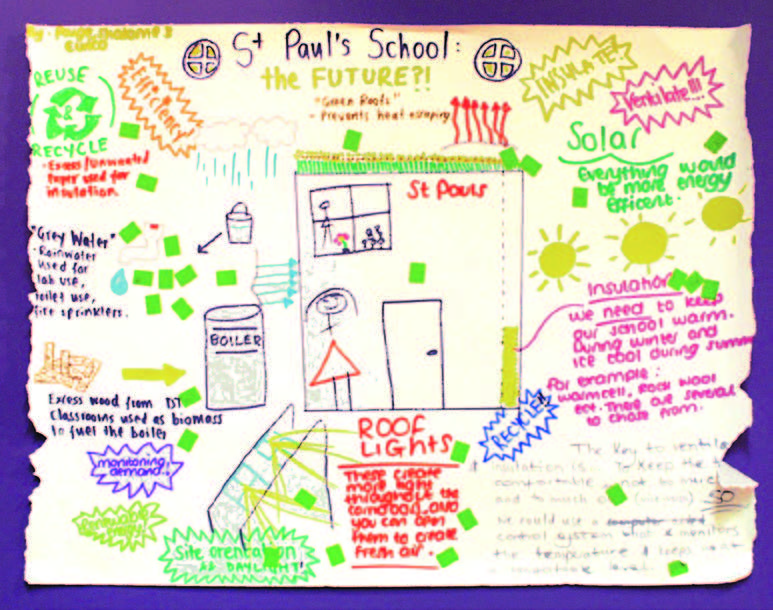 By: Paige,
St Paul's School:
the FUTURE?!
REUSE
&
RECYCLE
• Excess/unwanted
Paper used for
insulation.
Efficiency!
"Green Roofs"
- Prevents heat escaping
INSULATE!
Ventilate!!!
Solar
Everything would
be more energy
efficent.
St Pauls
"Grey Water"
• Rainwater
used for
lab use,
toilet use,
fire sprinklers.
BOILER
Insulation
we need to keep
our school warm.
During winter and
ice cool during summer
For example:
warmcell, Rock wool
ect. There are several
to chose from.
Excess wood from DT
Classrooms used as biomass
to fuel the boiler
RECYCLE!
ROOF
LIGHTS
These create
more light
throughout the
and
you can open
them to create
Fresh air.
monitoring
demand..
Renewable
Energy!
Site orentation
&& DAYLIGHT!
The Key to
insulation is.. To keep the
comfortable - not to much
and to much so
We could use a computer
control system that monitors
the temperature & keeps
level.